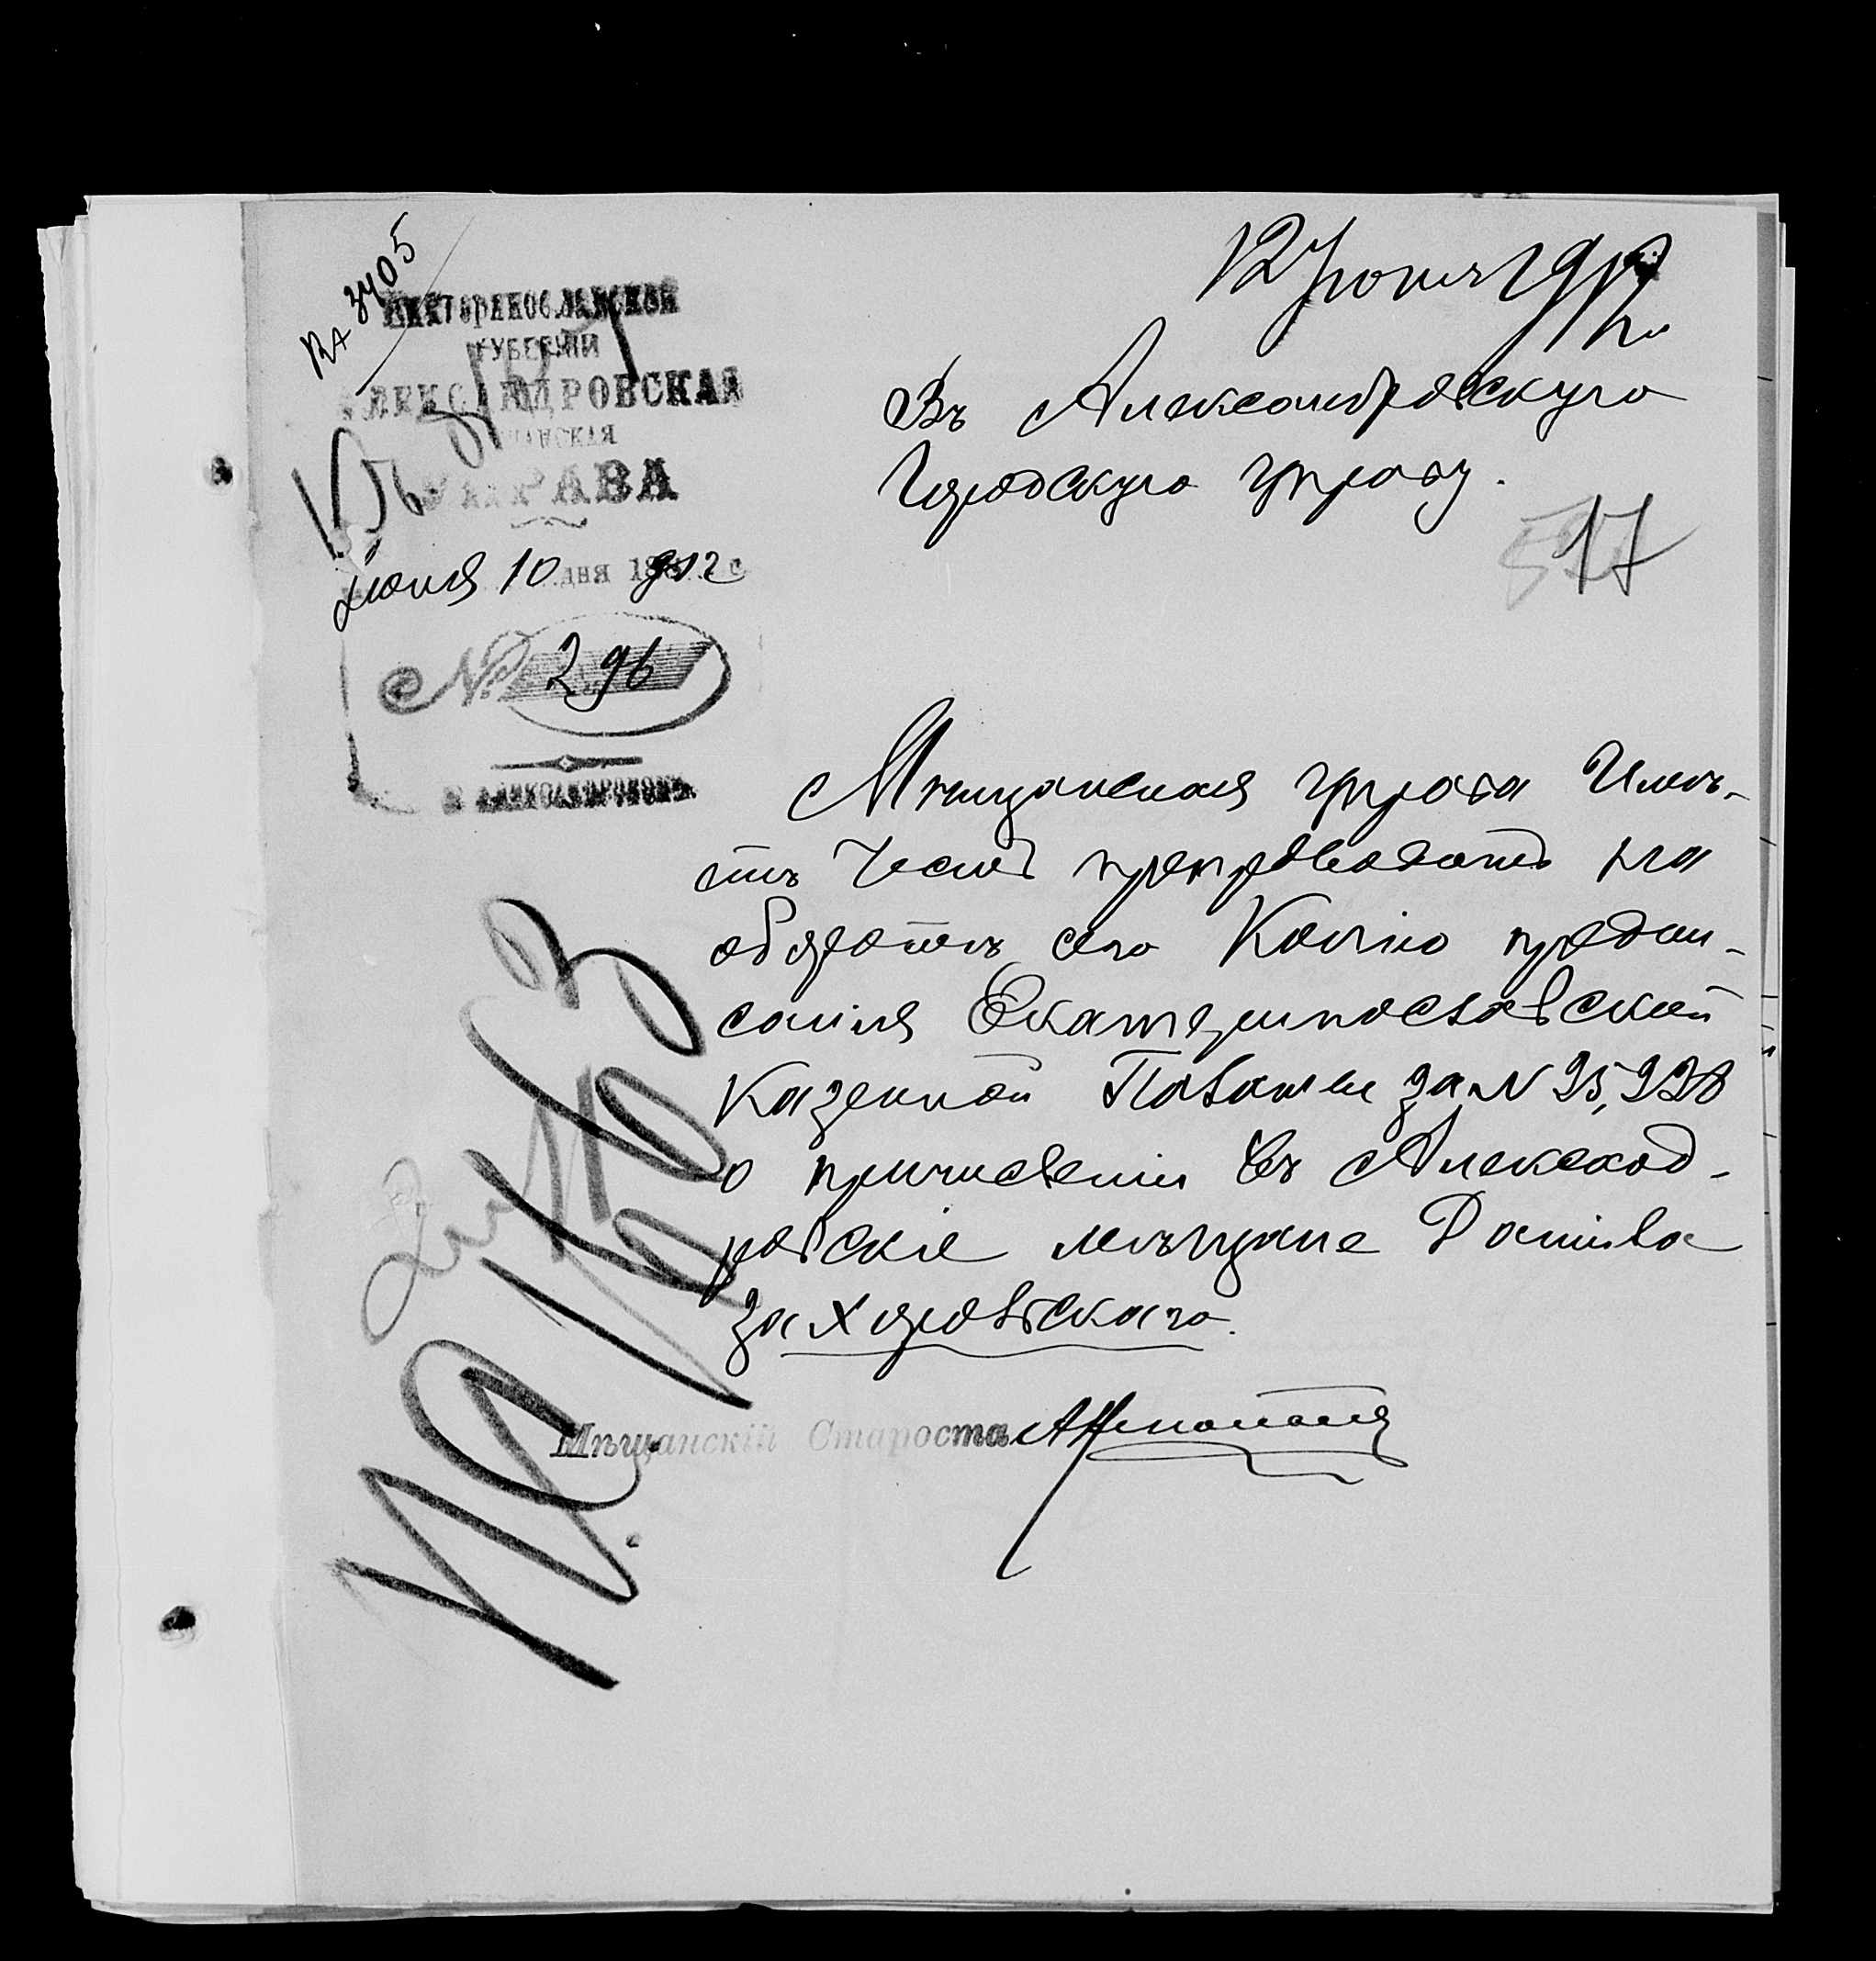 № 3405
12 Іюня 1912 г.
ЕКАТЕРИНОСЛАВСКОЙ
ГУБЕРНІИ
АЛЕКСАНДРОВСКАЯ
МѢЩАНСКАЯ
УПРАВА
Іюня 10 дня 1912 г.
№ 296
Г. АЛЕКСАНДРОВСКЪ
Въ Александровскую
Городскую Управу.
17
Мѣщанская Управа Имѣ-
етъ Честь препроводить на
оборотѣ сего Копію предпи-
санія Екатеринославской
Казенной Палаты за № 25,228
о причисленіи въ Александ-
ровскіе мѣщане Даніила
Захоровскаго.
Мѣщанскій Староста